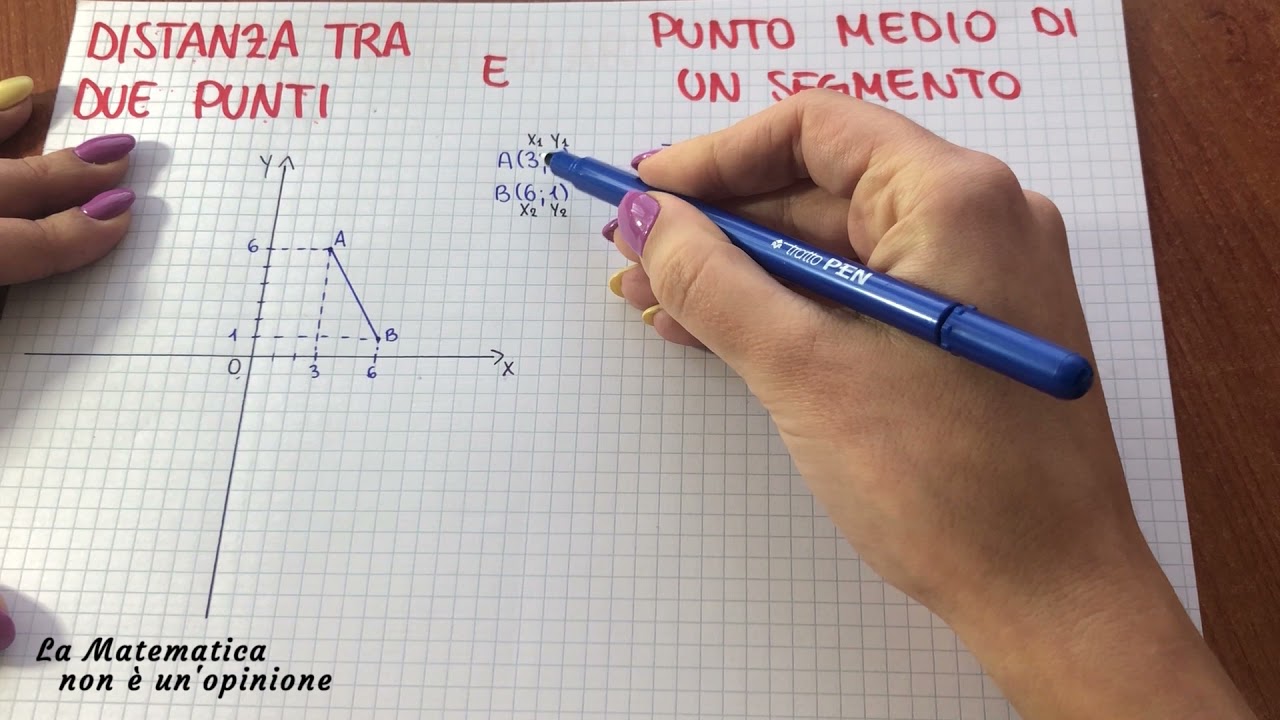 DISTANZA TRA
DUE PUNTI
E
PUNTO MEDIO DI
UN SEGMENTO
X1 Y1
A(3;
B(6;1)
X2 Y2
Y
6
A
1
B
O
3
6
X
tratto PEN
La Matematica
non è un'opinione